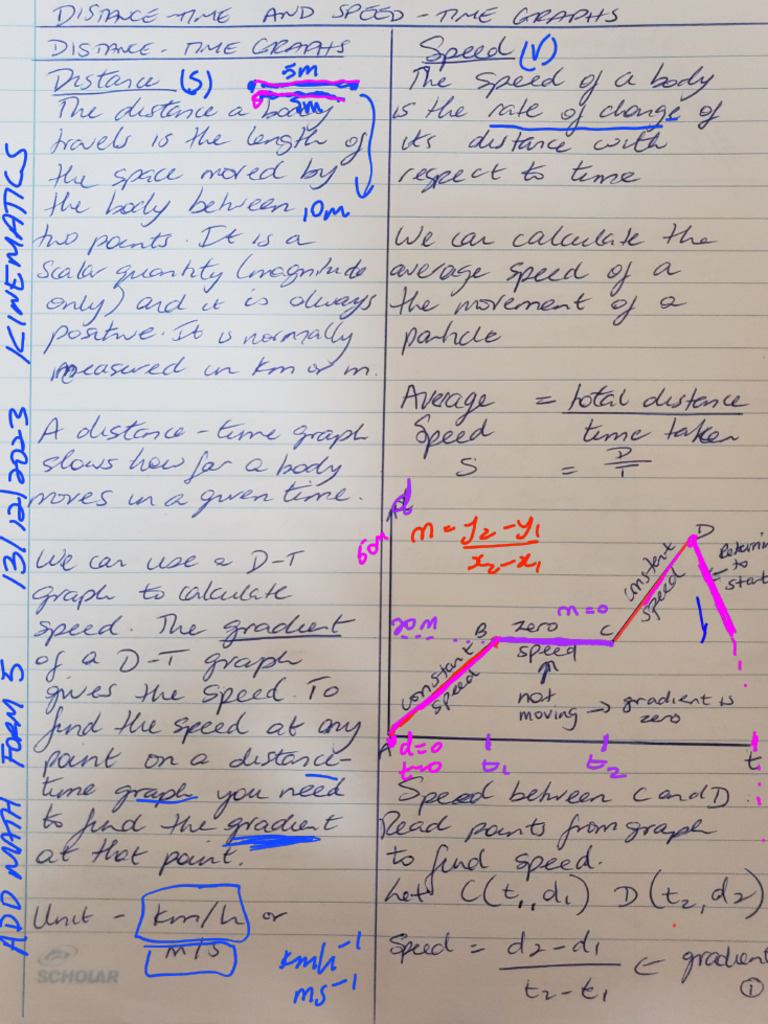 DISTANCE-TIME AND SPEED-TIME GRAPHS
KINEMATICS
13/12/2023
ADD MATH FORM 5
DISTANCE-TIME GRAPHS
Distance (S)
5m
5m
10m
The distance a body
travels is the length of
the space moved by
the body between
two points. It is a
scalar quantity (magnitude
only) and it is always
positive. It is normally
measured in km or m.
A distance-time graph
slows how far a body
moves in a given time.
We can use a D-T
graph to calculate
speed. The gradient
of a D-T graph
gives the speed. To
find the speed at any
point on a distance-
time graph you need
to find the gradient
at that point.
Unit - km/h or
m/s
km/h⁻¹
ms⁻¹
SCHOLAR
Speed (V)
The speed of a body
is the rate of change of
its distance with
respect to time
We can calculate the
average speed of a
the movement of a
particle
Average = total distance
Speed time taken
S = D/T
d
60m
m = y2-y1
x2-x1
D
Returnin
to
start
constant
speed
m=0
20m
B
zero
speed
C
constant
speed
not
moving → gradient is
zero
A
d=0
t=0
t1
t2
t
Speed between C and D.
Read points from graph
to find speed.
Let C(t1, d1) D(t2, d2)
Speed = d2-d1 ← gradient
t2-t1
①